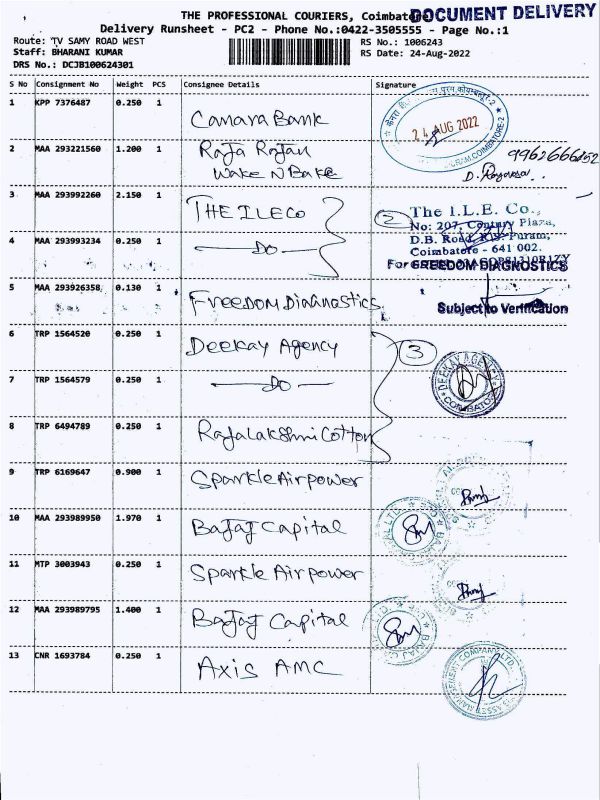 THE PROFESSIONAL COURIERS, Coimbatore
DOCUMENT DELIVERY
Delivery Runsheet - PC2 - Phone No.:0422-3505555 - Page No.:1
Route: TV SAMY ROAD WEST
RS No.: 1006243
Staff: BHARANI KUMAR
RS Date: 24-Aug-2022
DRS No.: DCJB100624301
S No Consignment No Weight PCS Consignee Details Signature
1 KPP 7376487 0.250 1 Canara Bank
24 AUG 2022
2 MAA 293221560 1.200 1 Raja Rajan
Wake N Bake
9962666252
3 MAA 293992260 2.150 1 THE ILE Co
2
The I.L.E. Co.,
No: 207, Century Plaza,
D.B. Road, R.S. Puram,
Coimbatore - 641 002.
4 MAA 293993234 0.250 1 DO
For FREEDOM DIAGNOSTICS
5 MAA 293926358 0.130 1 Freedom Diagnostics
Subject to Verification
6 TRP 1564520 0.250 1 Deekay Agency
3
DEEKAY AGENCY
COIMBATORE
7 TRP 1564579 0.250 1 DO
8 TRP 6494789 0.250 1 Rajalakshmi Cotton
9 TRP 6169647 0.900 1 Sparkle Airpower
10 MAA 293989950 1.970 1 Bajaj Capital
11 MTP 3003943 0.250 1 Sparkle Airpower
12 MAA 293989795 1.400 1 Bajaj Capital
13 CNR 1693784 0.250 1 Axis AMC